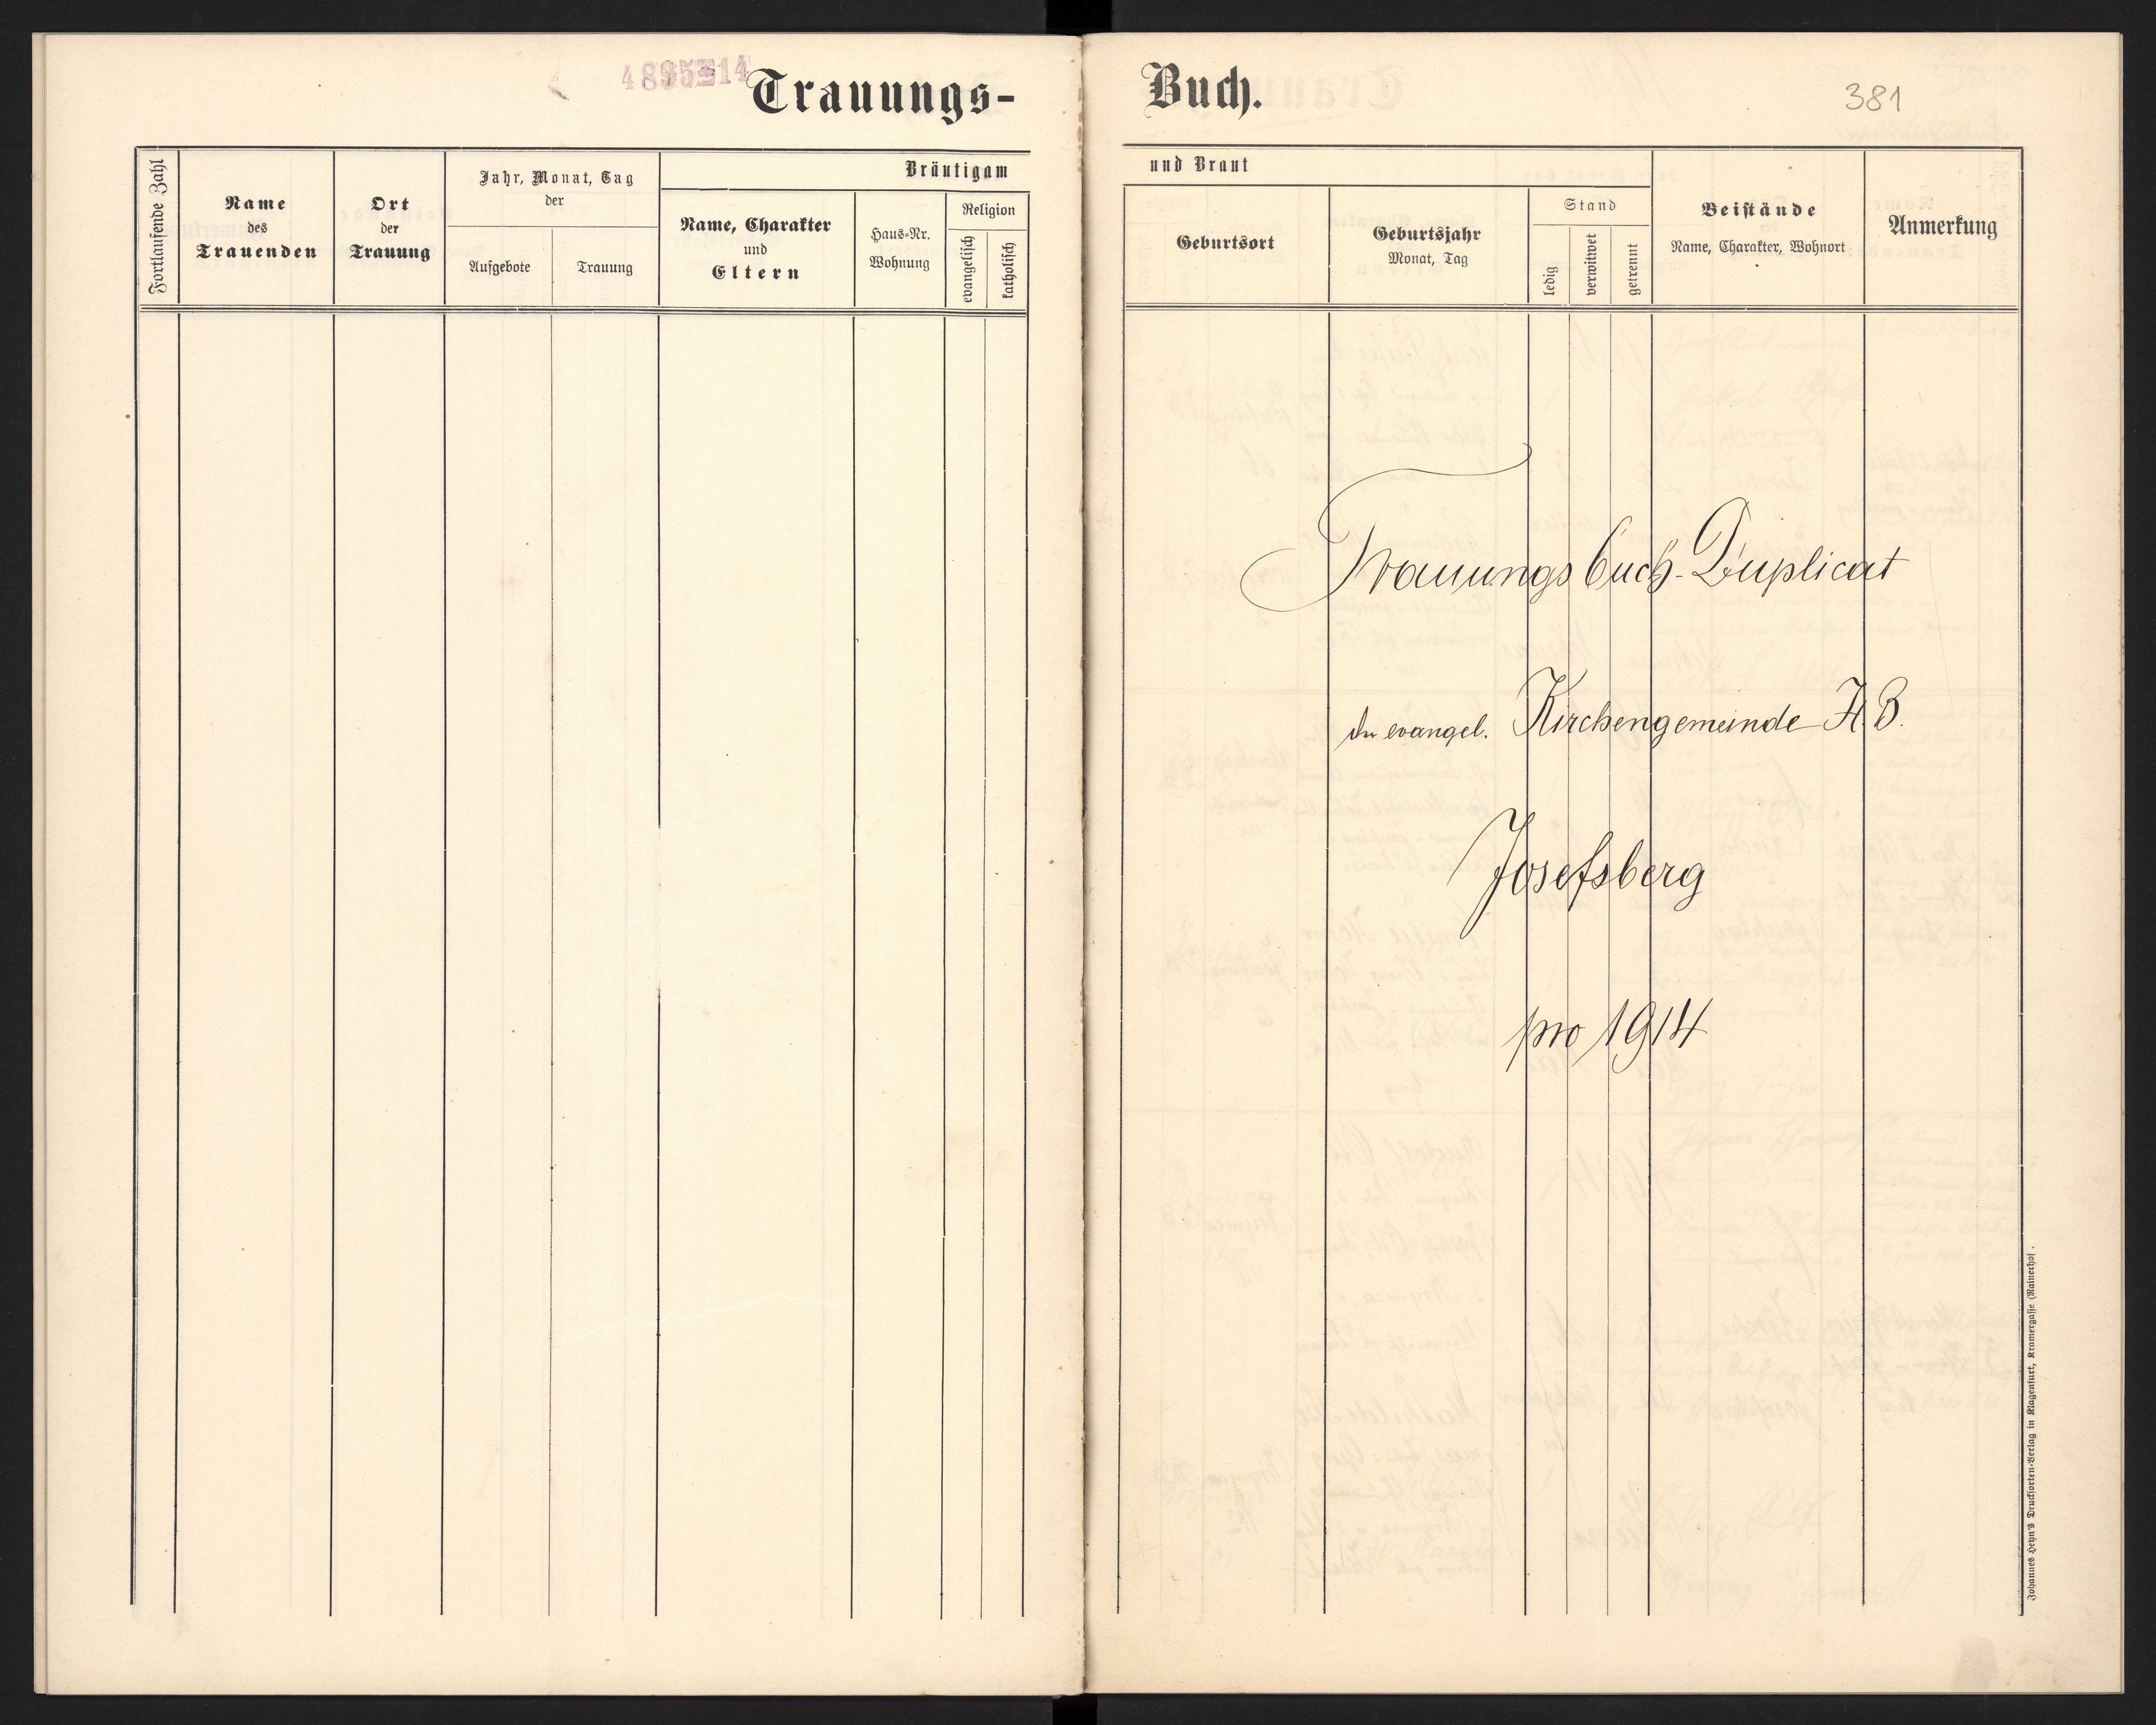 Trauungs-
Fortlaufende Zahl
Name
des
Trauenden
Ort
der
Trauung
Jahr, Monat, Tag
der
Aufgebote
Trauung
Bräutigam
Name, Charakter
und
Eltern
Haus-Nr.
Wohnung
Religion
evangelisch
katholisch
Buch.
381
und Braut
Geburtsort
Geburtsjahr
Monat, Tag
Stand
ledig
verwitwet
getrennt
Beistände
Name, Charakter, Wohnort
Anmerkung
Trauungsbuch-Duplicat
der evangel. Kirchengemeinde H. B.
Josefsberg
pro 1914
Johannes Heyn's Drucksorten-Verlag in Klagenfurt, Kramergasse (Rainerhof.